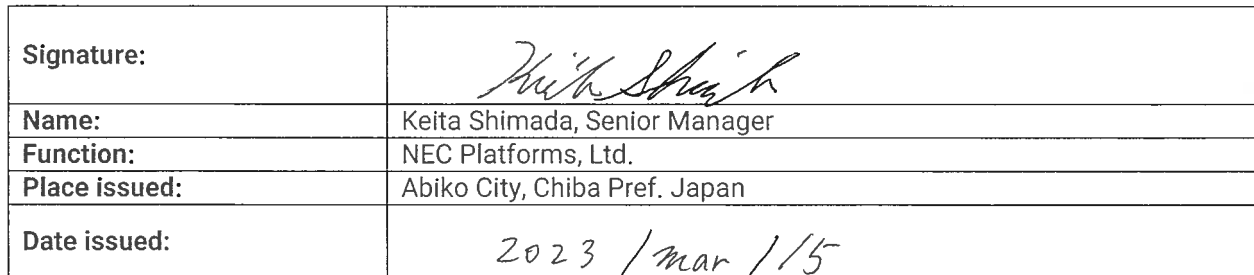 Signature:
Name: Keita Shimada, Senior Manager
Function: NEC Platforms, Ltd.
Place issued: Abiko City, Chiba Pref. Japan
Date issued: 2023 / mar / 15